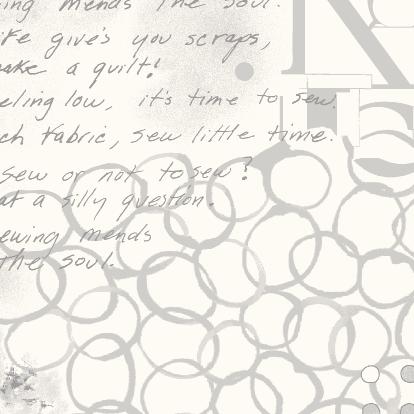 ing mends the soul.
ife give's you scraps,
ake a quilt!
eling low, it's time to sew.
ch fabric, sew little time.
sew or not to sew?
at a silly question.
ewing mends
the soul.